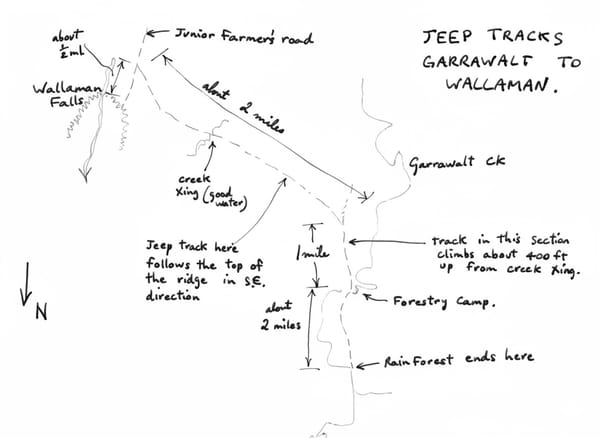 JEEP TRACKS
GARRAWALT TO
WALLAMAN.
Junior Farmer's road
about
½ ml
Wallaman
Falls
about 2 miles
creek
Xing (good
water)
Garrawalt Ck
Jeep track here
follows the top of
the ridge in S.E.
direction
1 mile
track in this section
climbs about 400 ft
up from creek Xing.
Forestry Camp.
about
2 miles
Rain Forest ends here
N